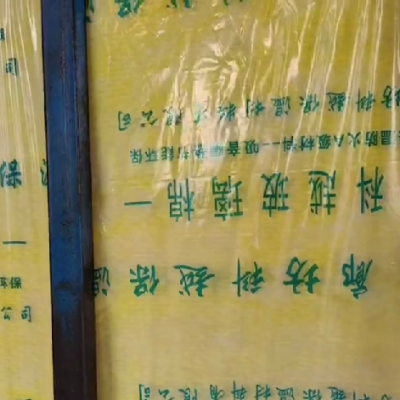 科越保温材料有限公司
廊坊科越保温
科越玻璃棉一
温防火A级材料--吸音隔热节能环保
坊科越保温材料有限公司
越保